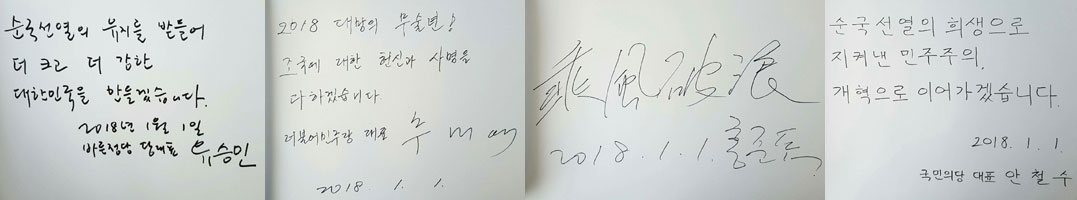 순국선열의 유지를 받들어
더 크고 더 강한
대한민국을 만들겠습니다.
2018년 1월 1일
바른정당 당대표 유승민
2018 대망의 무술년!
조국에 대한 헌신과 사명을
다하겠습니다.
더불어민주당 대표 추미애
2018. 1. 1.
乘風破浪
2018.1.1. 홍준표
순국선열의 희생으로
지켜낸 민주주의,
개혁으로 이어가겠습니다.
2018. 1. 1.
국민의당 대표 안철수